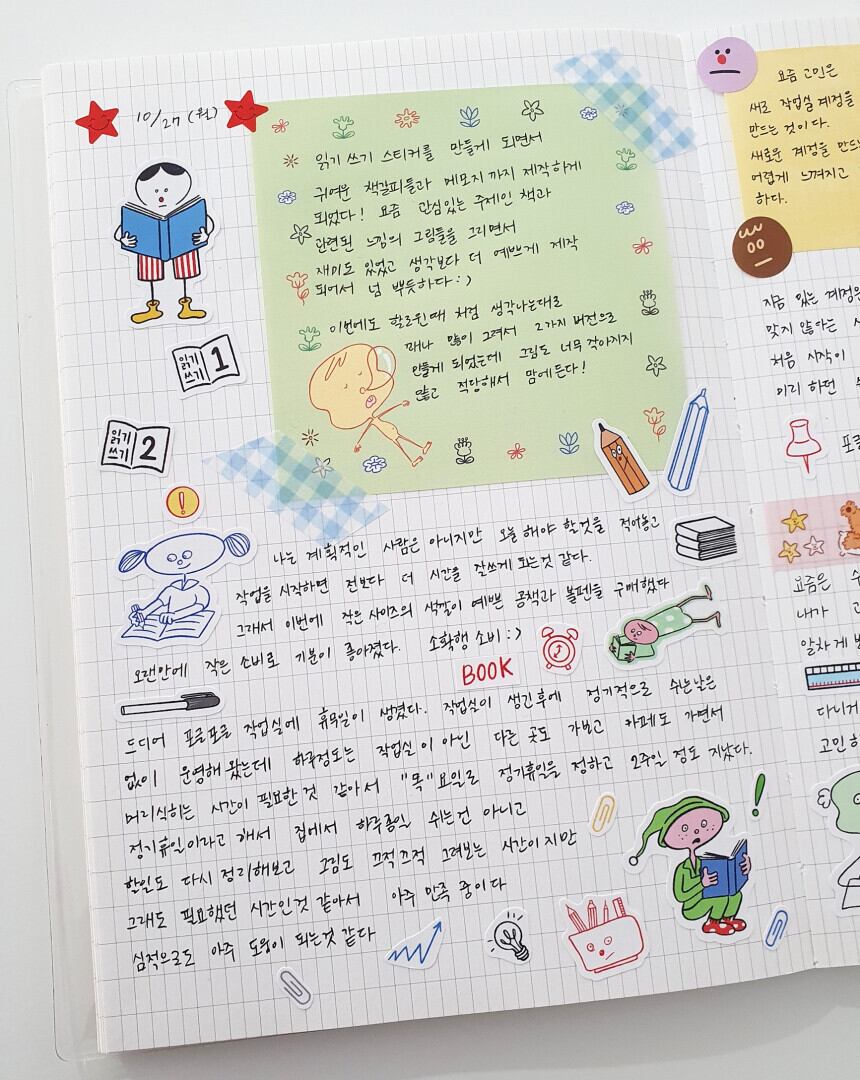 10/27 (월)
읽기 쓰기 스티커를 만들게 되면서
귀여운 책갈피들과 메모지 까지 제작하게
되었다! 요즘 관심있는 주제인 책과
관련된 느낌의 그림들을 그리면서
재미도 있었고 생각보다 더 예쁘게 제작
되어서 넘 뿌듯하다 :)
이번에도 할로윈때 처럼 생각나는대로
꽤나 많이 그려서 2가지 버전으로
만들게 되었는데 그림도 너무 작아지지
않고 적당해서 맘에든다!
읽기
쓰기 1
읽기
쓰기 2
!
나는 계획적인 사람은 아니지만 오늘 해야 할것을 적어놓고
작업을 시작하면 전보다 더 시간을 잘쓰게 되는것 같다.
그래서 이번에 작은 사이즈의 색깔이 예쁜 공책과 볼펜을 구매했다
오랜만에 작은 소비로 기분이 좋아졌다. 소확행 소비 :)
BOOK
드디어 포글포글 작업실에 휴무일이 생겼다. 작업실이 생긴후에 정기적으로 쉬는날은
없이 운영해 왔는데 하루정도는 작업실이 아닌 다른 곳도 가보고 카페도 가면서
머리식히는 시간이 필요한것 같아서 "목"요일로 정기휴일을 정하고 2주일 정도 지났다.
정기휴일이라고 해서 집에서 하루종일 쉬는건 아니고
할일도 다시 정리해보고 그림도 끄적끄적 그려보는 시간이지만
그래도 필요했던 시간인것 같아서 아주 만족 중이다
심적으로도 아주 도움이 되는것 같다
!
요즘 고민은
새로 작업실 계정을
만드는 것이다.
새로운 계정을
어렵게 느껴지고
하다.
지금 있는
맞지 않아는
처음 시작이
미리 하던
요즘은
내가
알차게
다니거